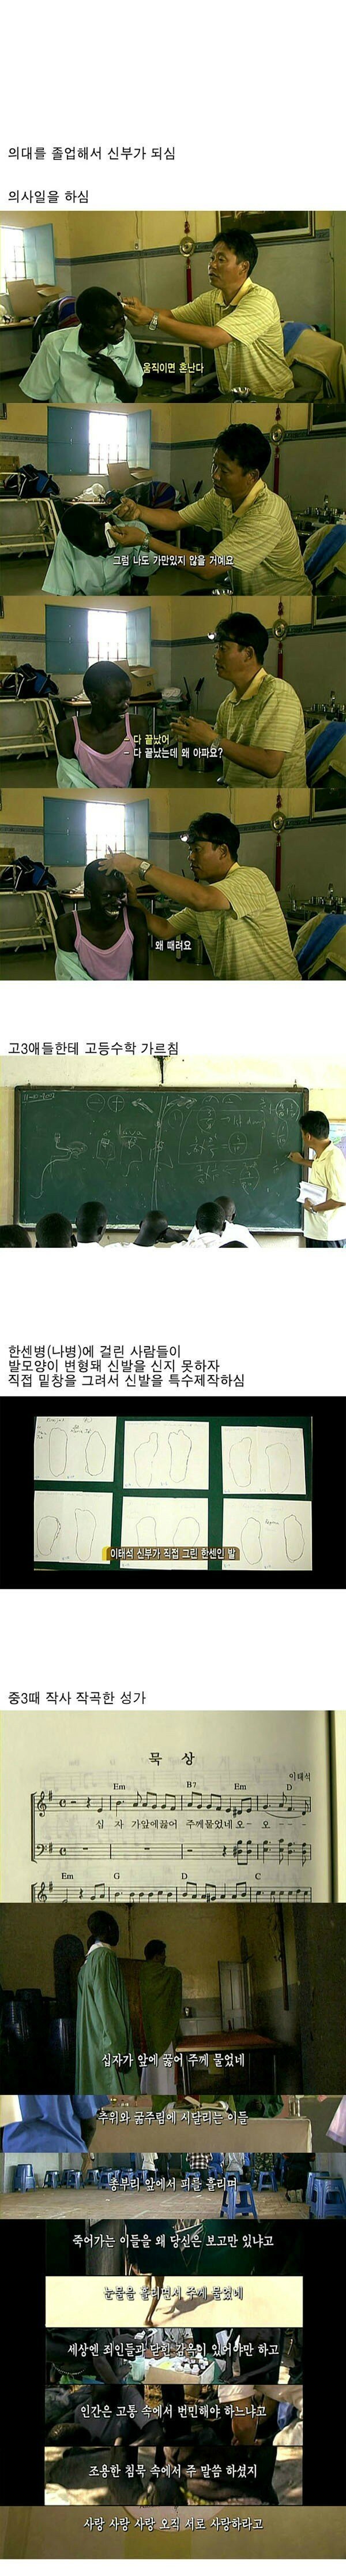 의대를 졸업해서 신부가 되심
의사일을 하심
움직이면 혼난다
그럼 나도 가만있지 않을 거예요
- 다 끝났어
- 다 끝났는데 왜 아파요?
왜 때려요
고3애들한테 고등수학 가르침
한센병(나병)에 걸린 사람들이
발모양이 변형돼 신발을 신지 못하자
직접 밑창을 그려서 신발을 특수제작하심
이태석 신부가 직접 그린 한센인 발
중3때 작사 작곡한 성가
묵 상
이태석
Em B7 Em D
십 자 가앞에꿇어 주께물었네오- 오 - - -
Em G D C
십자가 앞에 꿇어 주께 물었네
추위와 굶주림에 시달리는 이들
총부리 앞에서 피를 흘리며
죽어가는 이들을 왜 당신은 보고만 있냐고
눈물을 흘리면서 주께 물었네
세상엔 죄인들과 닫힌 감옥이 있어야만 하고
인간은 고통 속에서 번민해야 하느냐고
조용한 침묵 속에서 주 말씀 하셨지
사랑 사랑 사랑 오직 서로 사랑하라고